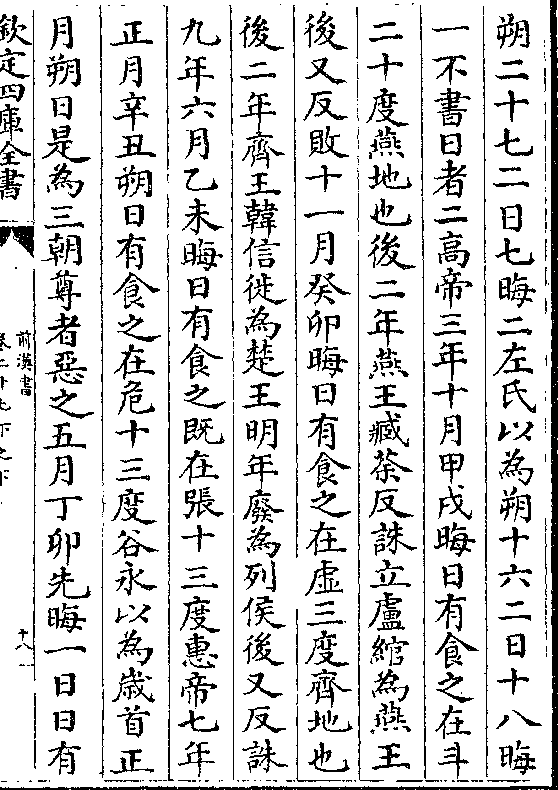 朔二十七二日七晦二左氏以為朔十六二日十八晦
一不書日者二高帝三年十月甲戌晦日有食之在斗
二十度燕地也後二年燕王臧荼反誅立盧綰為燕王
後又反敗十一月癸卯晦日有食之在虛三度齊地也
後二年齊王韓信徙為楚王明年廢為列侯後又反誅
九年六月乙未晦日有食之既在張十三度惠帝七年
正月辛丑朔日有食之在危十三度谷永以為歲首正
月朔日是為三朝尊者惡之五月丁卯先晦一日日有
欽定四庫全書
前漢書
卷二十七下之下
十八